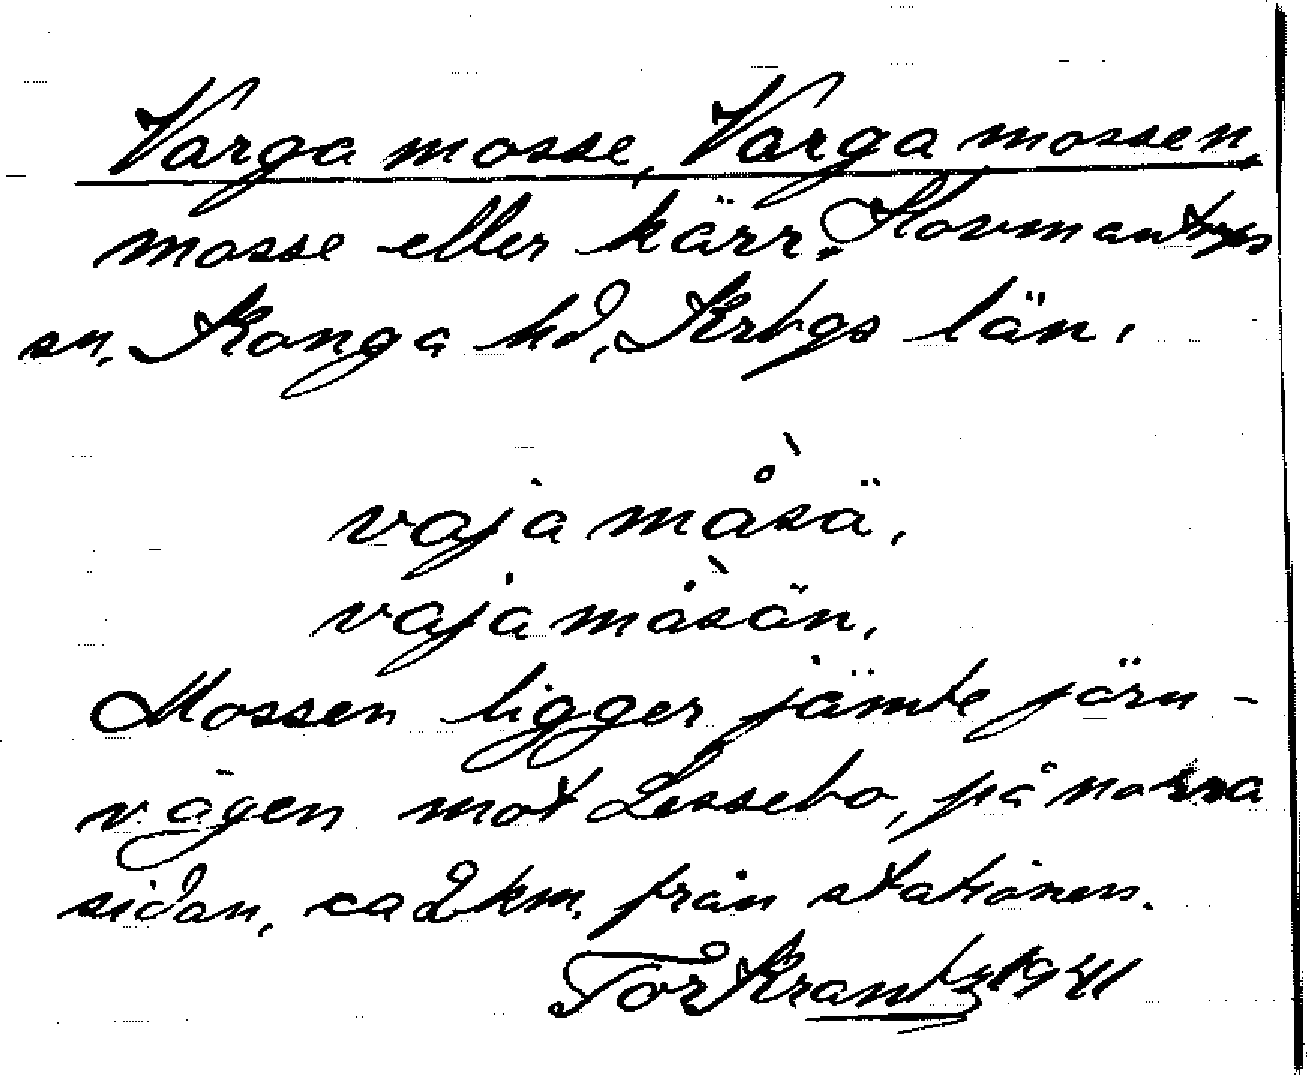 Varga mosse, Varga mossen,
mosse eller kärr. Hovmantorps
sn. Konga hd, Krbgs län.
vaja måsä,
vaja måsän,
Mossen ligger jämte järn-
vägen mot Lessebo, på norra
sidan, ca 2 km. från stationen.
Tor Krantz 1941